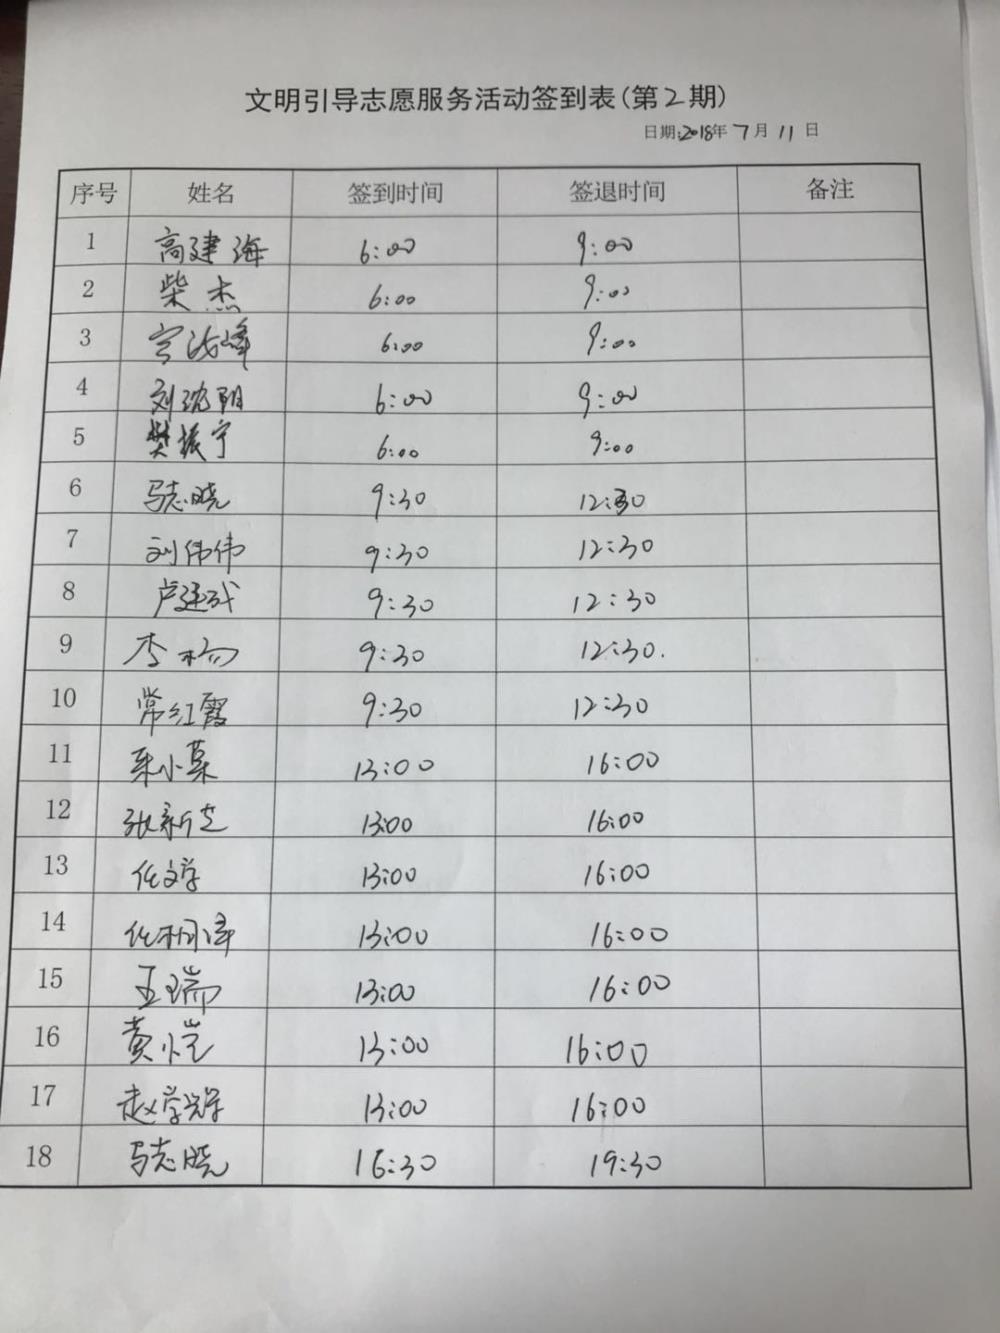 文明引导志愿服务活动签到表(第2期)
日期:2018年7月11日
序号 姓名 签到时间 签退时间 备注
1 高建海 6:00 9:00
2 柴杰 6:00 9:00
3 峰 6:00 9:00
4 刘沈阳 6:00 9:00
5 樊振宁 6:00 9:00
6 马志晓 9:30 12:30
7 刘伟伟 9:30 12:30
8 卢建 9:30 12:30
9 李杨 9:30 12:30.
10 常红霞 9:30 12:30
11 小 13:00 16:00
12 张新芝 13:00 16:00
13 任文学 13:00 16:00
14 13:00 16:00
15 王瑞 13:00 16:00
16 黄恺 13:00 16:00
17 赵学 13:00 16:00
18 马志晓 16:30 19:30